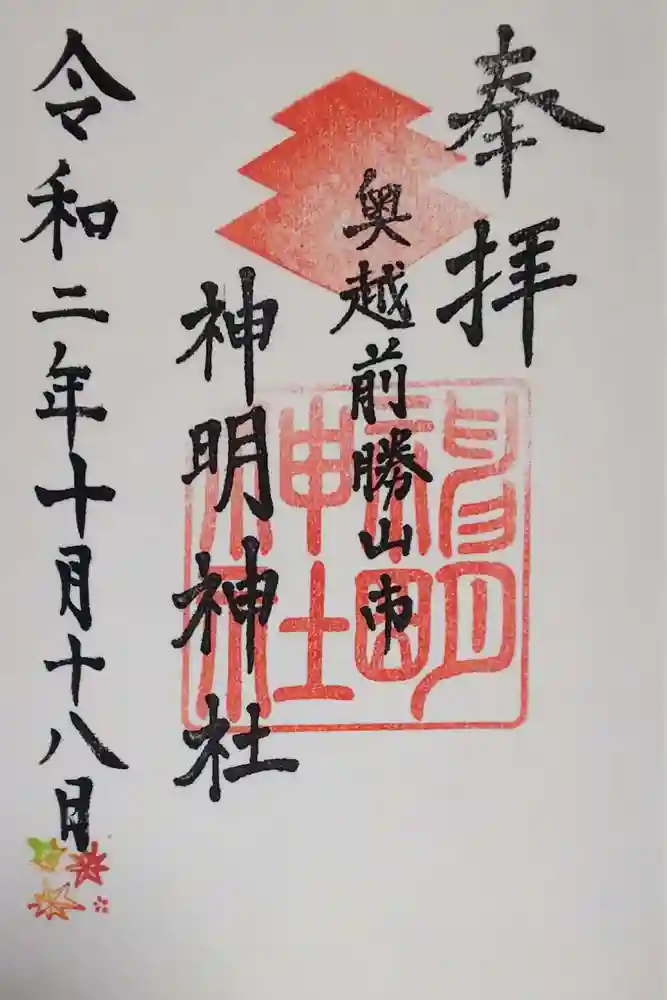 奉拝
奥越前勝山市
神明神社
令和二年十月十八日
神明
神社